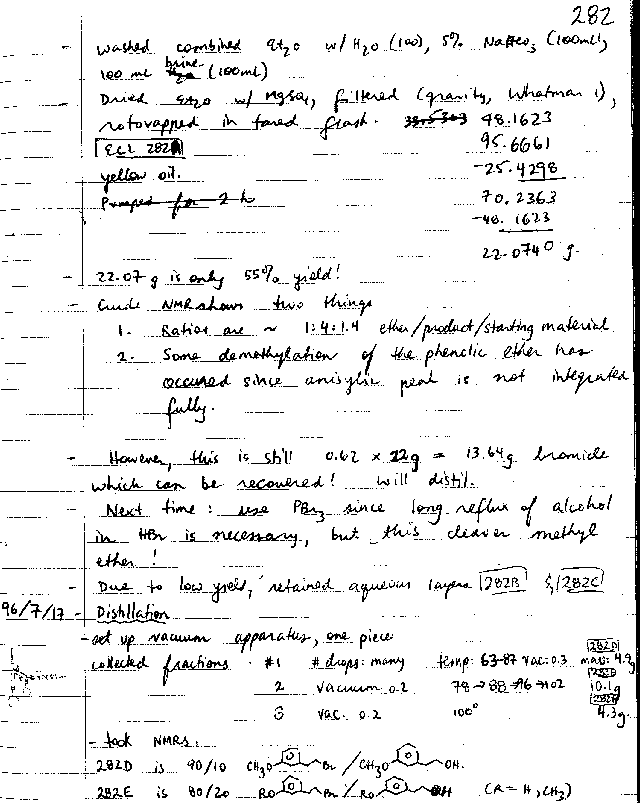 282
- washed combined Et2O w/ H2O (100), 5% NaHCO3 (100ml),
100 ml brine (100ml)
Dried Et2O w/ MgSO4, filtered (gravity, Whatman 1),
rotovapped in tared flask. 48.1623
ECL 282A 95.6661
yellow oil. -25.4298
Pumped for 2 h 70.2363
-48.1623
22.0740 g.
- 22.07 g is only 55% yield!
- Crude NMR shows two things
1. Ratios are ~ 1:4:1.4 ether/product/starting material
2. Some demethylation of the phenolic ether has
occured since anisylic peak is not integrated
fully.
- However, this is still 0.62 x 22g = 13.64g bromide
which can be recovered! will distil.
- Next time: use PBr3 since long reflux of alcohol
in HBr is necessary, but this cleaves methyl
ether!
- Due to low yield, retained aqueous layers 282B & 282C
96/7/17 - Distillation
- set up vacuum apparatus, one piece
collected fractions #1 # drops: many temp: 63-87 vac: 0.3 mass: 4.9g 282D
2 vacuum 0.2 78→88→96→102 10.1g
3 vac. 0.2 100° 4.3g.
- took NMRs.
282D is 90/10 CH3O Br / CH3O OH.
282E is 80/20 RO Br / RO OH (R = H, CH3)